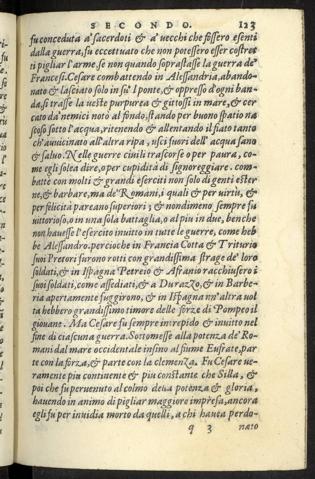 SECONDO. 123
fu conceduta a' sacerdoti & a' vecchi che fossero esenti
dalla guerra, fu eccettuato che non potessero esser costret
ti pigliar l'arme, se non quando soprastasse la guerra de'
Francesi. Cesare combattendo in Alessandria, abando-
nato & lasciato solo in su'l ponte, & oppresso d'ogni ban-
da, si trasse la veste purpurea & gittossi in mare, & cer
cato da' nemici notò al fondo, stando per buono spatio na
scoso sotto l'acqua, ritenendo & allentando il fiato tanto
ch'auvicinato all'altra ripa, uscì fuori dell'acqua sano
& salvo. Nelle guerre civili trascorse o per paura, co-
me egli solea dire, o per cupidità di signoreggiare. com-
battè con molti & grandi eserciti non solo di genti ester
ne, & barbare, ma de' Romani, i quali & per virtù, &
per felicità pareano superiori; & nondimeno sempre fu
vittorioso, o in una sola battaglia, o al piu in due, benche
non havesse l'esercito invitto in tutte le guerre, come heb
be Alessandro. percioche in Francia Cotta & Triturio
suoi Pretori furono rotti con grandissima strage de' loro
soldati, & in Ispagna Petreio & Afranio racchiusero i
suoi soldati, come assediati, & a Durazzo, & in Barbe-
ria apertamente fuggirono, & in Ispagna un'altra vol
ta hebbero grandissimo timore delle forze di Pompeo il
giovane. Ma Cesare fu sempre intrepido & invitto nel
fine di ciascuna guerra. Sottomesse alla potenza de' Ro-
mani dal mare occidentale insino al fiume Eufrate, par
te con la forza, & parte con la clemenza. Fu Cesare ve-
ramente piu continente & piu constante che Silla, &
poi che fu pervenuto al colmo della potenza & gloria,
havendo in animo di pigliar maggiore impresa, ancora
egli fu per invidia morto da quelli, a chi havea perdo-
q 3 nato